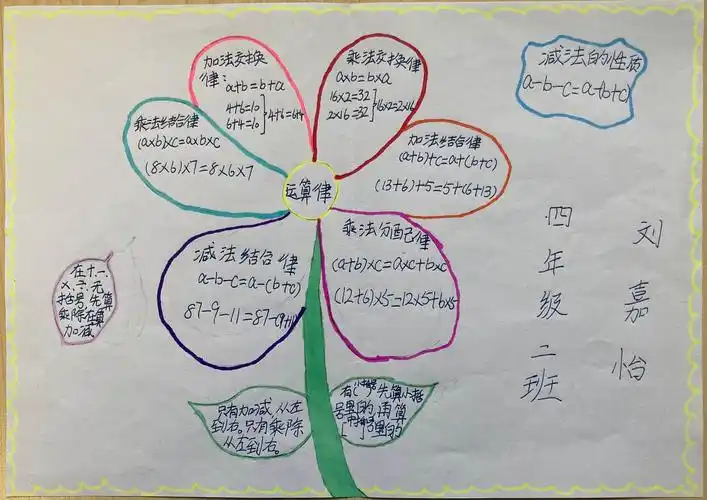 加法交换
律:
a+b=b+a
4+6=10
6+4=10
4+6=6+4
乘法交换律
a×b=b×a
16×2=32
2×16=32
16×2=2×16
减法的性质
a-b-c=a-(b+c)
乘法结合律
(a×b)×c=a×b×c
(8×6)×7=8×6×7
加法结合律
(a+b)+c=a+(b+c)
(13+6)+5=5+(6+13)
运算律
减法结合律
a-b-c=a-(b+c)
87-9-11=87-(9+11)
乘法分配律
(a+b)×c=a×c+b×c
(12+6)×5=12×5+6×5
四年级二班
刘嘉怡
在十一、
×、÷、无
括号,先算
乘除在算
加减
只有加减,从左
到右。只有乘除
从左到右。
有小括号先算小括
号里的,再算
号里的